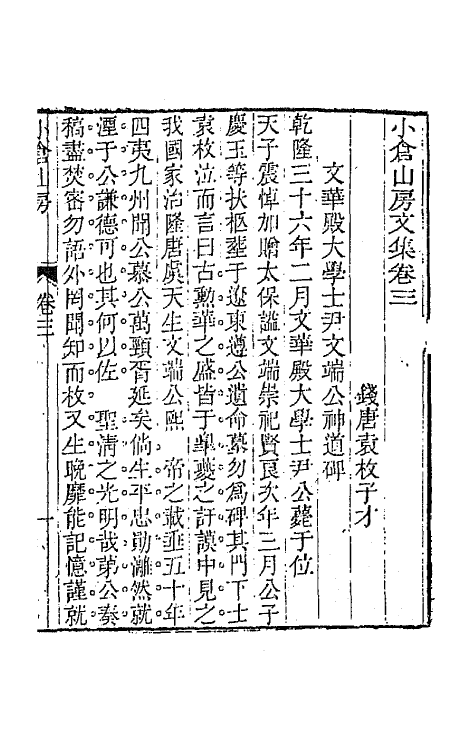 小倉山房文集卷三
錢唐袁枚子才
文華殿大學士尹文端公神道碑
乾隆三十六年二月文華殿大學士尹公薨于位
天子震悼加贈太保諡文端崇祀賢良次年三月公子
慶玉等扶柩葬于遼東遵公遺命墓勿爲碑其門下士
袁枚泣而言曰古勳華之盛皆于臯夔之訏謨中見之
我國家治隆唐虞天生文端公熙 帝之載垂五十年
四夷九州聞公慕公萬頸胥延矣倘生平忠勛灕然就
湮于公謙德可也其何以佐 聖清之光明哉第公奏
稿盡焚密勿語外罔聞知而枚又生晚靡能記憶謹就
小倉山房 卷三 一